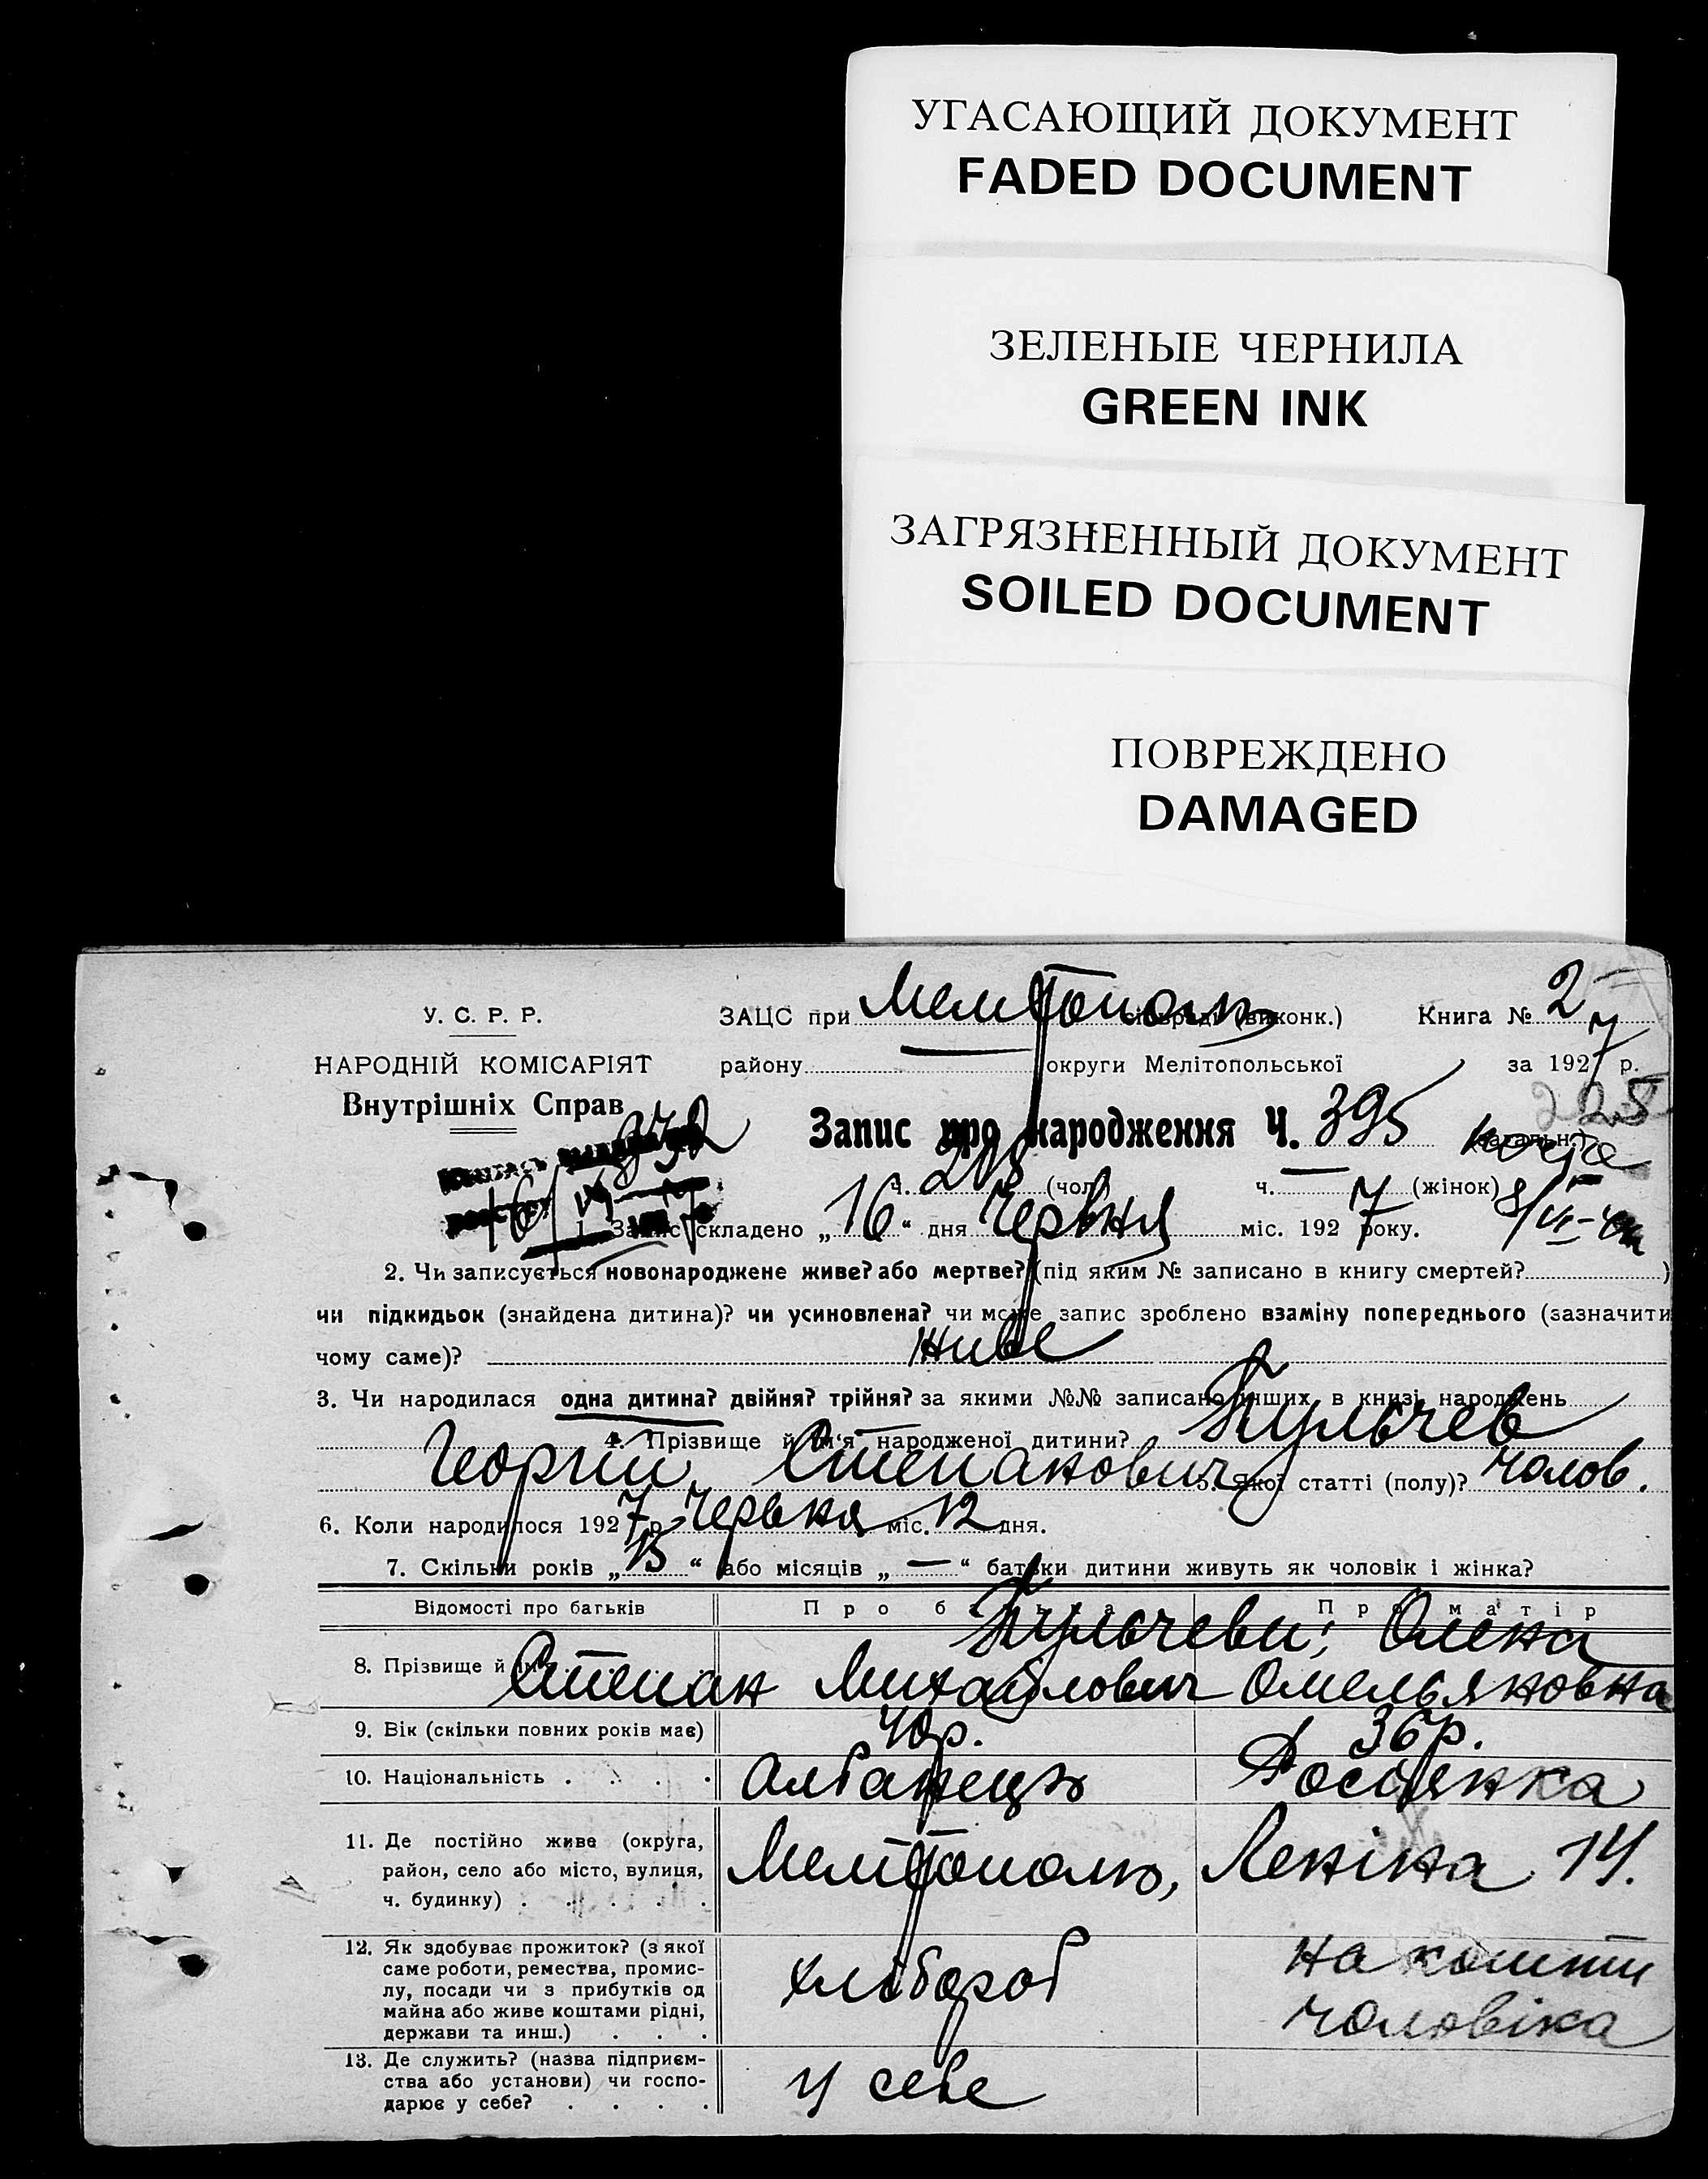 УГАСАЮЩИЙ ДОКУМЕНТ
FADED DOCUMENT
ЗЕЛЕНЫЕ ЧЕРНИЛА
GREEN INK
ЗАГРЯЗНЕННЫЙ ДОКУМЕНТ
SOILED DOCUMENT
ПОВРЕЖДЕНО
DAMAGED
У. С. Р. Р.
НАРОДНІЙ КОМІСАРІЯТ
Внутрішніх Справ
ЗАЦС при Мелітополь сільраді (виконк.) Книга № 2
району — округи Мелітопольської за 1927 р.
225
Запис про народження Ч. 395 (загальн.)
ч. (чол.) ч. — (жінок)
1. Запис складено „16“ дня Червня міс. 1927 року.
2. Чи записується новонароджене живе? або мертве? (під яким № записано в книгу смертей? )
чи підкидьок (знайдена дитина)? чи усиновлена? чи може запис зроблено взаміну попереднього (зазначити
чому саме)? живе
3. Чи народилася одна дитина? двійня? трійня? за якими №№ записано інших в книзі народжень
4. Прізвище й ім'я народженої дитини? Кульчев
Георгій Степанович 5. Якої статті (полу)? чолов.
6. Коли народилося 1927 р. Червня міс. 12 дня.
7. Скільки років „13“ або місяців „—“ батьки дитини живуть як чоловік і жінка?
Відомості про батьків Про батька Про матір
Кульчеви; Олена
8. Прізвище й ім'я Степан Михайлович Омельяновна
9. Вік (скільки повних років має) 40 р. 36 р.
10. Національність . . . . Албанець Росіянка
11. Де постійно живе (округа,
район, село або місто, вулиця,
ч. будинку) . . . . . Мелітополь, Леніна 14.
12. Як здобуває прожиток? (з якої
саме роботи, ремества, промис-
лу, посади чи з прибутків од
майна або живе коштами рідні,
держави та инш.) . . .
хлібороб
на кошти
чоловіка
13. Де служить? (назва підприєм-
ства або установи) чи госпо-
дарює у себе? . . . .
у себе